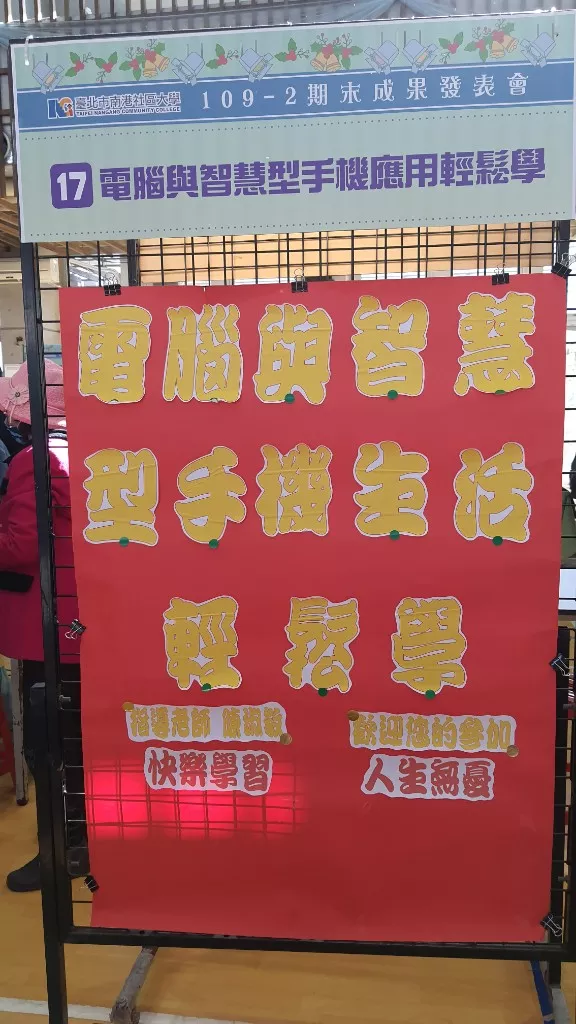 臺北市南港社區大學 109-2期末成果發表會
TAIPEI NANGANG COMMUNITY COLLEGE
17 電腦與智慧型手機應用輕鬆學
電腦與智慧
型手機生活
輕鬆學
指導老師
歡迎您的參加
快樂學習
人生無憂